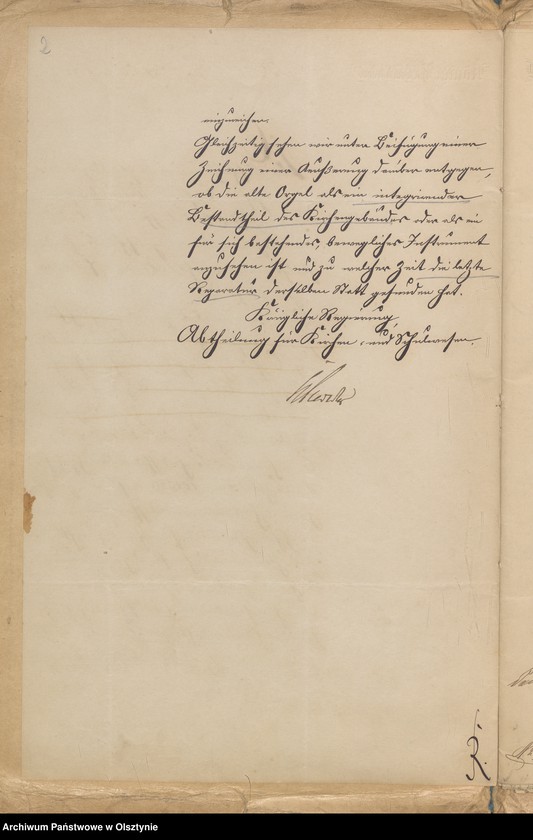 2
einzureichen.
Gleichzeitig sehen wir unter Beifügung einer
Zeichnung einer Aeußerung darüber entgegen,
ob die alte Orgel als ein integrirender
Bestandtheil des Kirchengebäudes oder als ein
für sich bestehendes, bewegliches Instrument
anzusehen ist und zu welcher Zeit die letzte
Reparatur derselben Statt gefunden hat.
Königliche Regierung,
Abtheilung für Kirchen- und Schulwesen.
R.
Archiwum Państwowe w Olsztynie